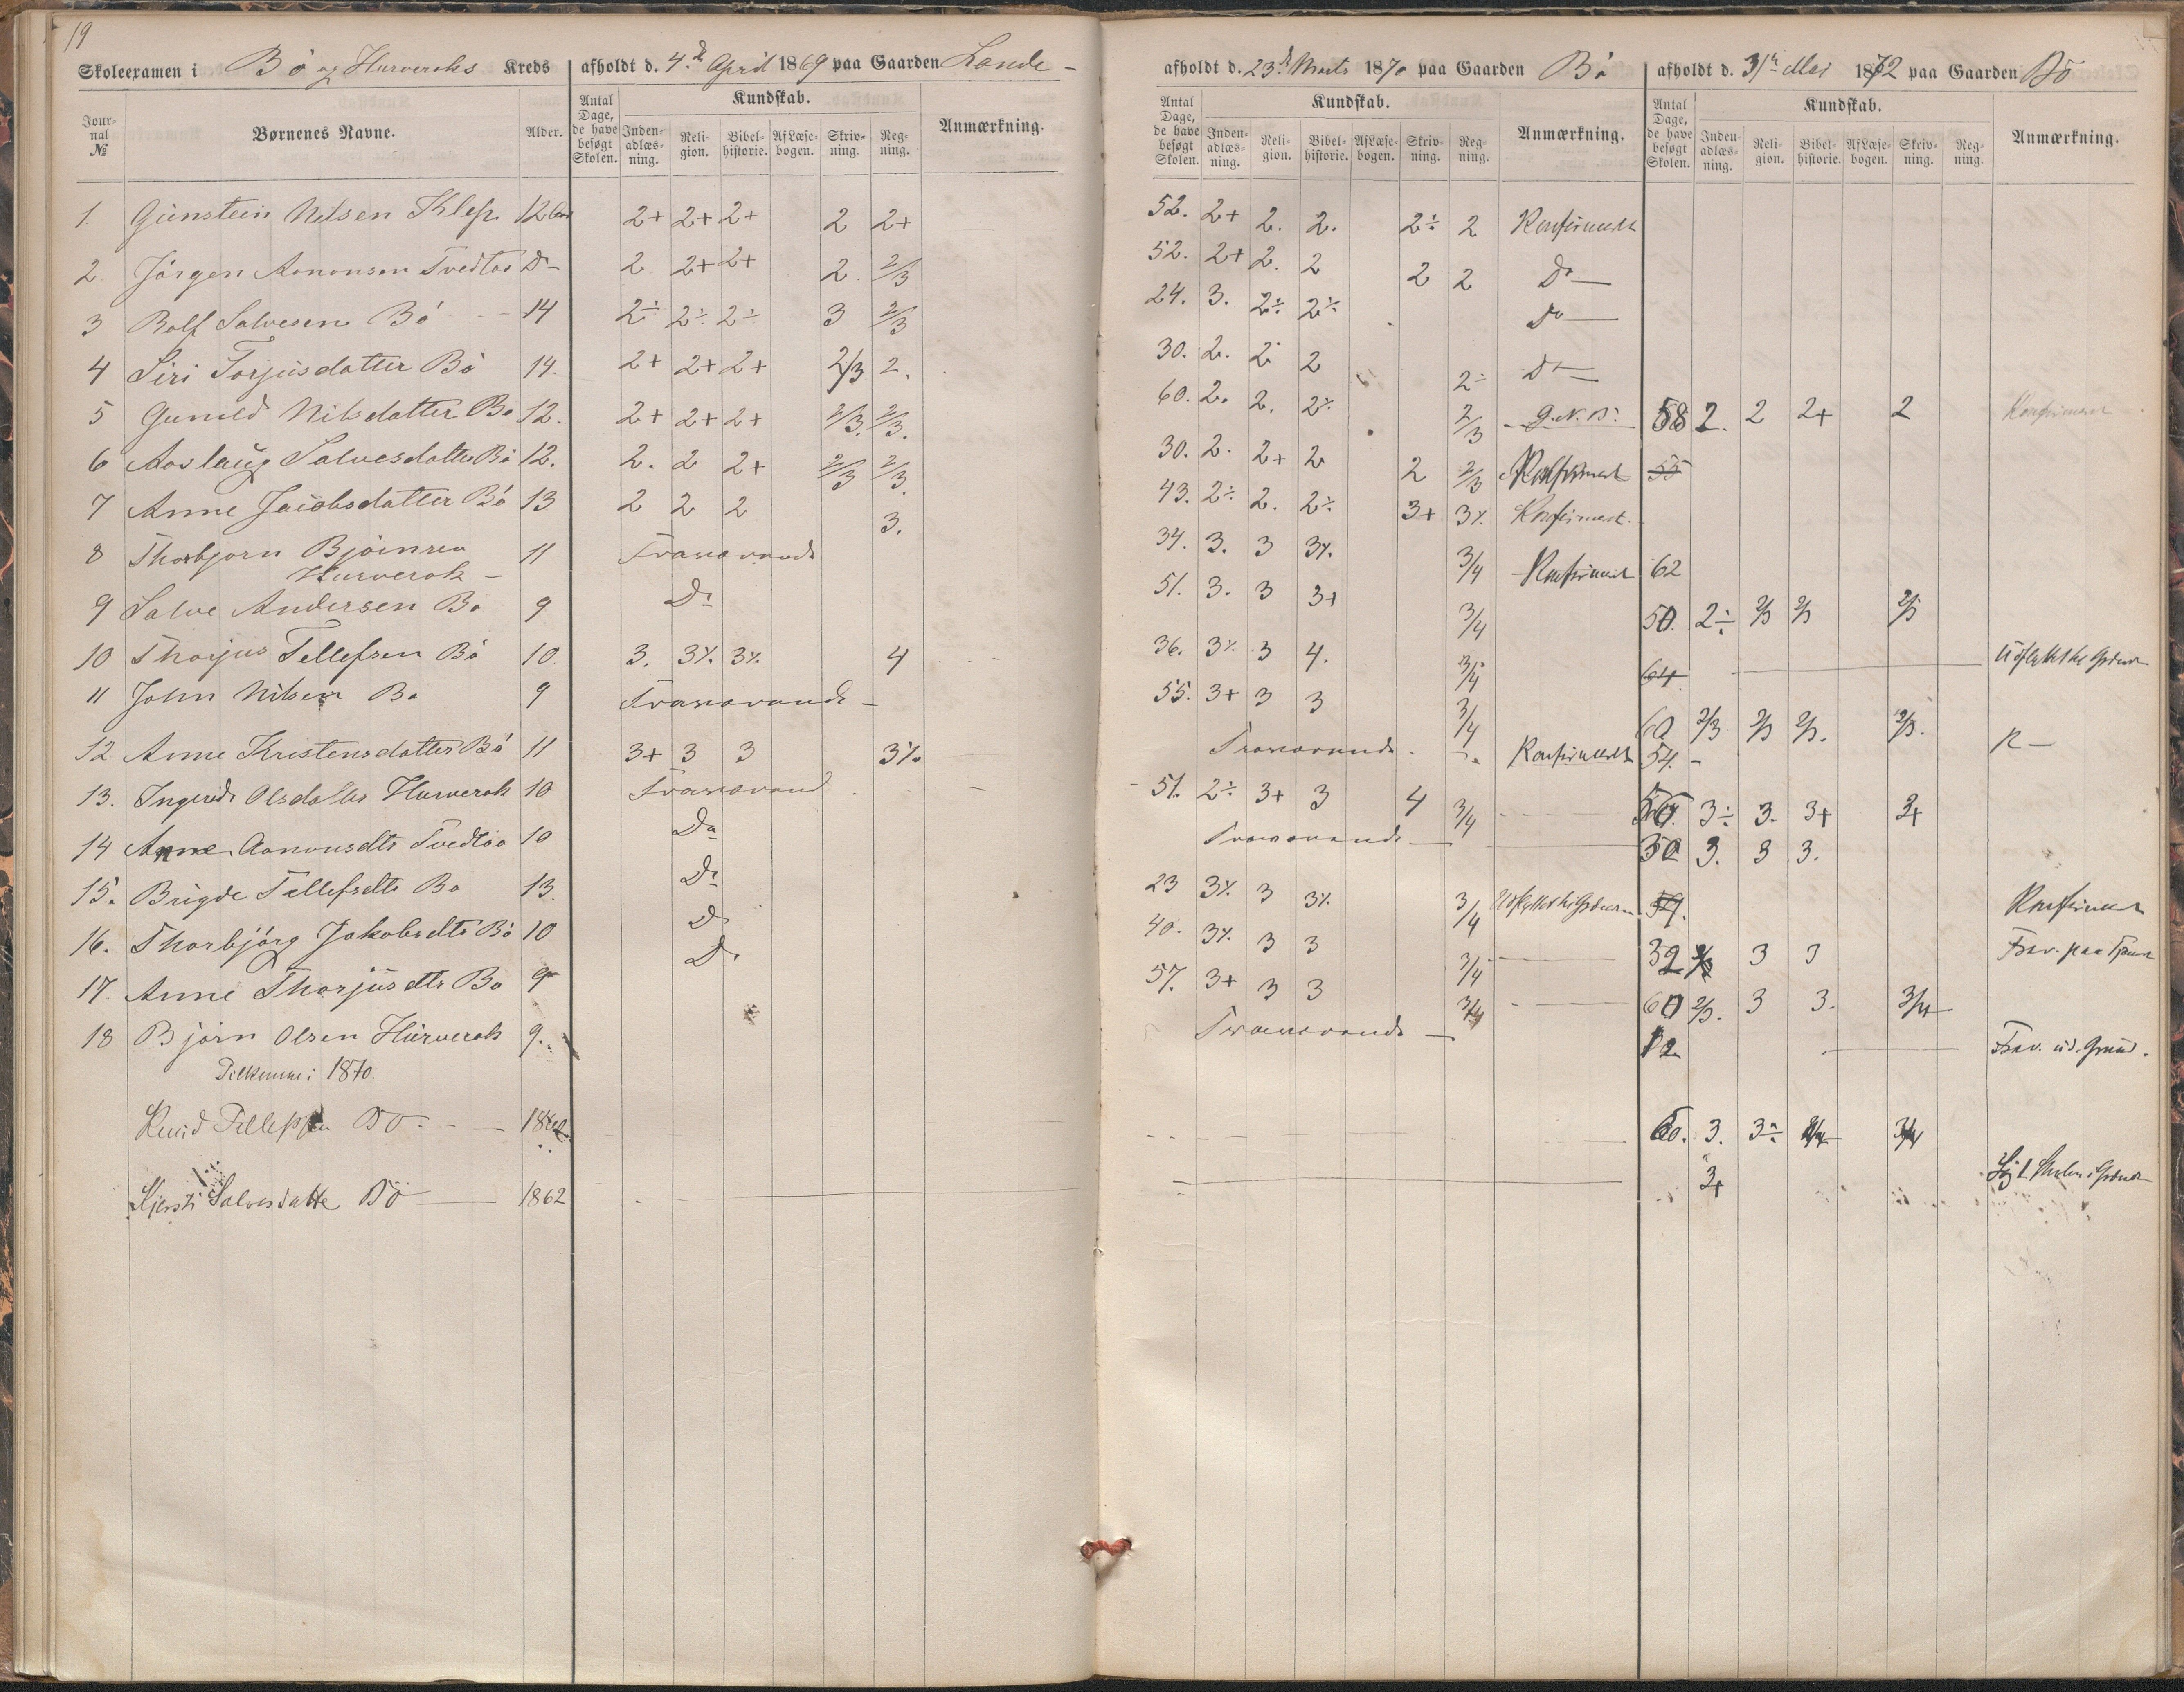 19
Skoleexamen i Bö og Hurveroks Kreds afholdt d. 4.de April 1869 paa Gaarden Lande - afholdt d. 23.de Marts 1870 paa Gaarden Bö afholdt d. 31te Mai 1872 paa Gaarden Bö
Jour-nal № Børnenes Navne. Alder. Antal Dage, de have besøgt Skolen. Kundskab. Inden-adlæs-ning. Reli-gion. Bibel-historie. Af Læse-bogen. Skriv-ning. Reg-ning. Anmærkning.
Antal Dage, de have besøgt Skolen. Kundskab. Inden-adlæs-ning. Reli-gion. Bibel-historie. Af Læse-bogen. Skriv-ning. Reg-ning. Anmærkning.
Antal Dage, de have besøgt Skolen. Kundskab. Inden-adlæs-ning. Reli-gion. Bibel-historie. Af Læse-bogen. Skriv-ning. Reg-ning. Anmærkning.
1. Gunstein Nilsen Klep. 12 2+ 2+ 2+ 2 2+ 52. 2+ 2. 2. 2÷ 2 Konfirmert
2 Jörgen Aanonsen Tvedtoe Do- 2 2+ 2+ 2. 2/3 52. 2+ 2. 2 2 2 Do —
3 Rolf Salvesen Bö 14 2÷ 2÷ 2÷ 3 2/3 24. 3. 2÷ 2÷ Do —
4 Siri Torjusdatter Bö 14. 2+ 2+ 2+ 2/3 2. 30. 2. 2 2 2÷ Do —
5 Gunild Nilsdatter Bö 12. 2+ 2+ 2+ 2/3. 2/3. 60. 2. 2. 2÷ 2/3 G. N. B. 58 2. 2 2+ 2 Konfirmert
6 Aaslaug Salvesdatter Bö 12. 2. 2 2+ 2/3 2/3. 30. 2. 2+ 2 2 2/3 Konfirmert 55
7 Anne Jacobsdatter Bö 13 2 2 2 3. 43. 2÷ 2. 2÷ 3+ 3÷ Konfirmert.
8 Thorbjorn Bjöinsen 11 Fraværende 34. 3. 3 3÷ 3/4 Konfirmert 62
Hurverok -
9 Salve Andersen Bö 9 Do 51. 3. 3 3+ 3/4 50. 2÷ 2/3 2/3 2/3
10 Thorjus Tellefsen Bö 10. 3. 3÷ 3÷ 4 36. 3÷ 3 4. 3/4 64
11 John Nilsen Bö 9 Fraværende - 55. 3+ 3 3 3/4 60 2/3 2/3 2/3. 2/3.
12 Anne Kristensdatter Bö 11 3+ 3 3 3÷ Fraværende. Konfirmert 54. - K —
13. Ingerd Olsdatter Hurverok 10 Fraværend - 51. 2÷ 3+ 3 4 3/4 3÷ 3. 3+ 3+
14 Anne Aanonsdtr Tvedtoe 10 Do Fraværende — 30 3. 3 3.
15. Brigde Tellefsdtr Bö 13. Do 23 3÷ 3 3÷ 3/4 Konfirmert
16. Thorbjörg Jakobsdtr Bö 10 Do 40. 3÷ 3 3 3/4 32 3 3 Frav. paa
17. Anne Thorjusdtr Bö 9 Do 57. 3+ 3 3 3/4 60 2/3. 3 3. 3/4
18 Björn Olsen Hurverok 9. Fraværende — 12 Frav. ud. Grund.
Tilkomne i 1870.
Knud Tellefsen Bö - - 1862 60. 3. 3÷ 3/4
Kjersti Salvesdatte Bö — 1862 3+